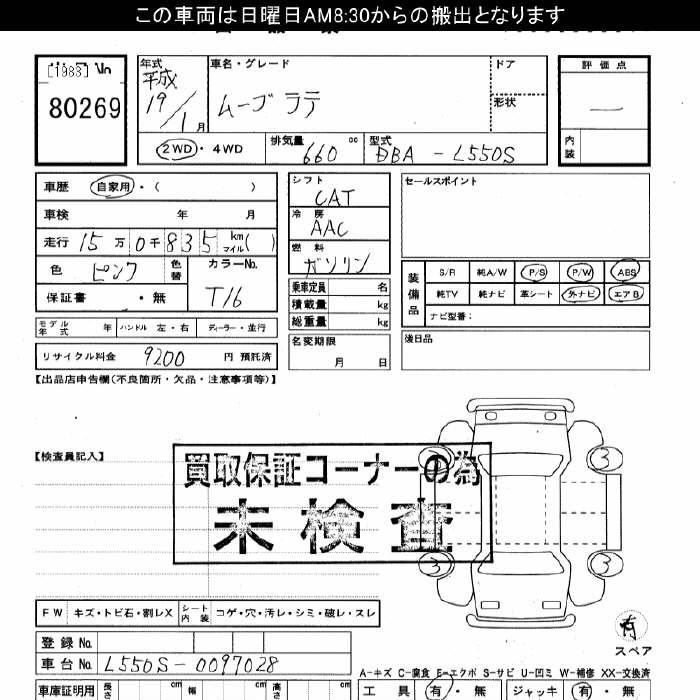 この車両は日曜日AM8:30からの搬出となります
[1983]
80269
年式 車名・グレード ドア 評価点
平成
19/1月 ムーブ ラテ 形状 —
内装
2WD・4WD 排気量 660 cc 型式 DBA - L550S
車歴 自家用・( )
車検 年 月
走行 15万0千835 km マイル( )
色 ピンク 色替 カラーNo.
T16
保証書 ・無
モデル年式 年 ハンドル 左・右 ディーラー・並行
リサイクル料金 9200 円 預託済
シフト
CAT
冷房
AAC
燃料
ガソリン
乗車定員 名
積載量 kg
総重量 kg
名変期限
月 日
セールスポイント
装備品 S/R 純A/W P/S P/W ABS
純TV 純ナビ 革シート 外ナビ エアB
ナビ型番:
後日品
【出品店申告欄(不良箇所・欠品・注意事項等)】
【検査員記入】
買取保証コーナーの為
未検査
3 3
3 3
有
スペア
FW キズ・トビ石・割レX シート内装 コゲ・穴・汚レ・シミ・破レ・スレ
登録 No.
車台 No. L550S-0097028
A-キズ C-腐食 E-エクボ S-サビ U-凹ミ W-補修 XX-交換済
車庫証明用 長さ cm 幅 cm 高さ cm
工具 有・無 ジャッキ 有・無